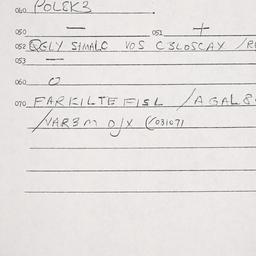 040 POLSK3
050 — 051 +
052 QGLY SIMALC VOS C3LOSCAY /R
053 —
060 O
070 FARKILTE FISL /AGAL8
/VAR3M O/X (/031071